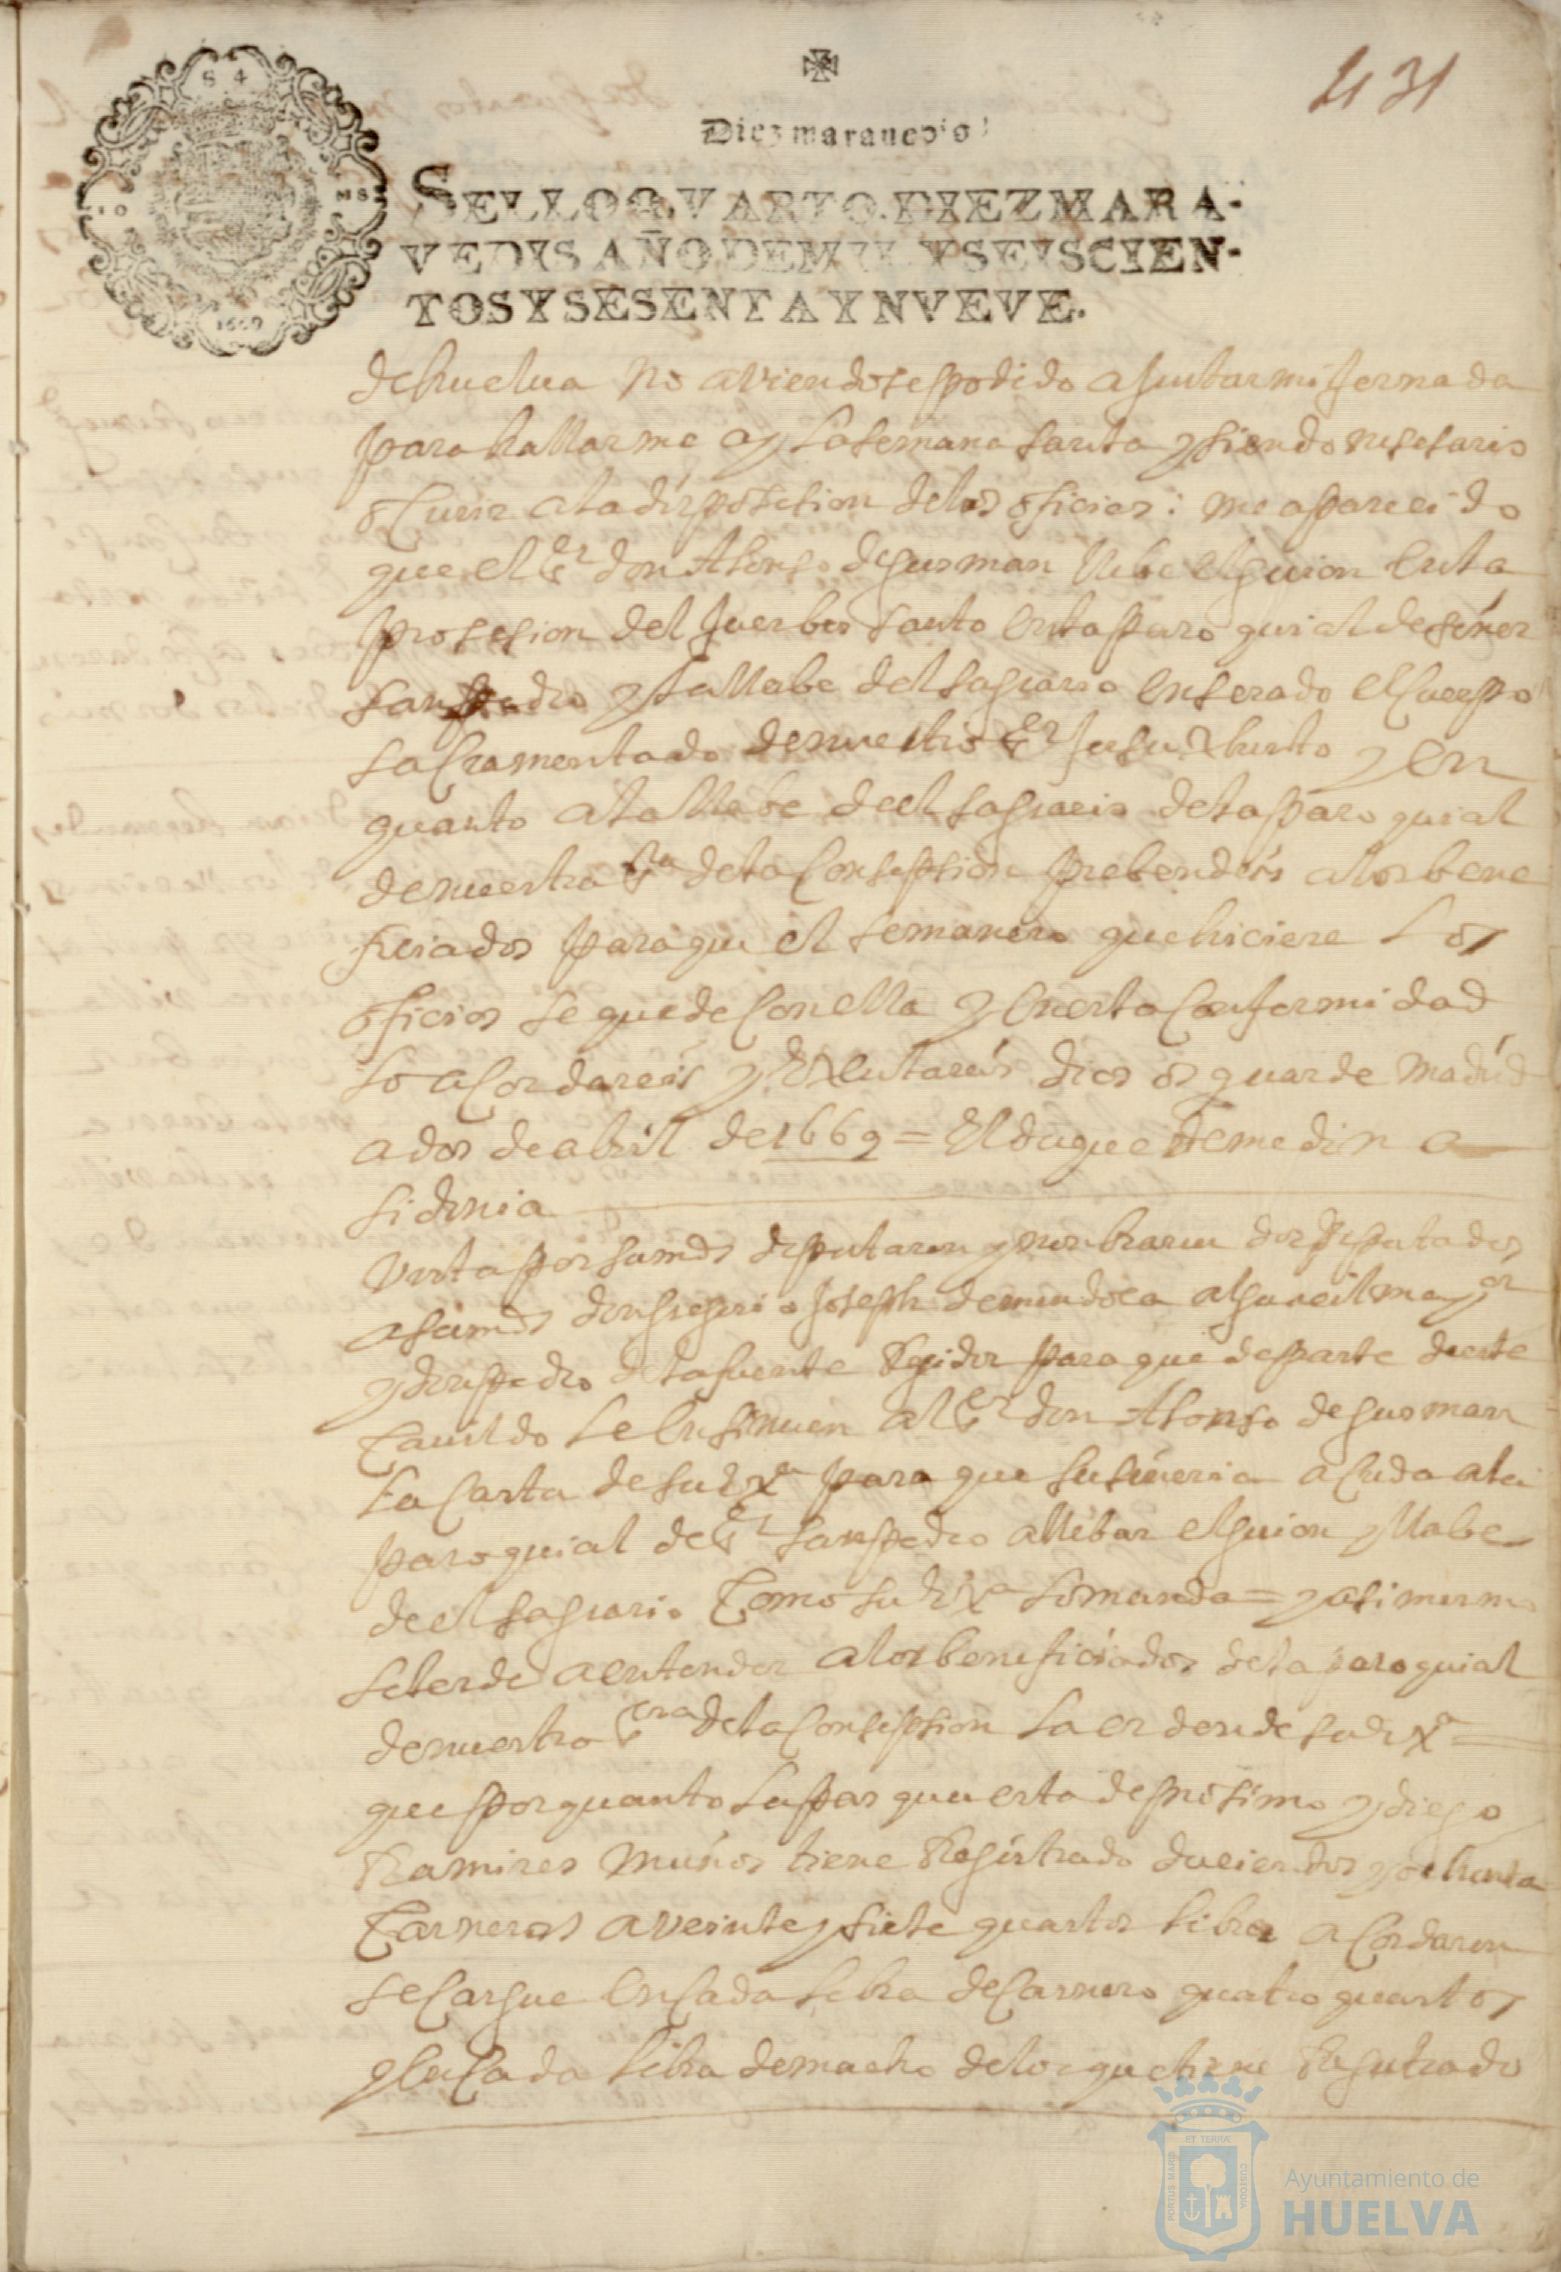 431
Diez marauedis
SELLO QVARTO. DIEZ MARA-
VEDIS AÑO DE MIL Y SEISCIEN-
TOS Y SESENTA Y NVEVE.
S 4
MS
1O
1669
de huelua no aviendose podido ajustar mi Jornada
para hallarme ay la semana santa y siendo nesesario
ocurir a la disposision de los oficios: me a parecido
que el Sr don Alonso de gusman llebe el guion en la
prosesion del Juebes santo en la paroquial de señor
san pedro y la llabe del sagrario enserado el Cuerpo
sacramentado de nuestro Sr Jesu Xhristo y en
quanto a la llabe de el sagrario de la paroquial
de nuestra Sra de la Consepsion prebendreis a los bene
ficiados para que el semanero que hiciere los
oficios se quede con ella y en esta Conformidad
lo acordareis y Executareis Dios os guarde Madrid
a dos de abril de 1669 = El duque de medina
sidonia
Vista por sus mds diputaron y nonbraron dos Diputados
a sus mds don gregorio Joseph de mendoca alguacil mayor
y don pedro de la fuente Regidor para que de parte de este
Cauildo le Insinuen al Sr don Alonso de gusman
la Carta de su Exa para que su señoria acuda a la
paroquial de Sr san pedro a llebar el guion y llabe
de el sagrario Como su Exa lo manda = y asimismo
se les de a entender a los beneficiados de la paroquial
de nuestra Sora de la Consepsion la orden de su Exa =
que por quanto la pasqua esta de prosimo y diego
Ramires Muños tiene Registrado ducientos y ochenta
Carneros a veinte y siete quartos libra acordaron
se Cargue en Cada libra de Carnero quatro quartos
y en Cada libra de macho de los que tiene Registrado
PORTUS MARIS
ET TERRÆ
CUSTODIA
Ayuntamiento de
HUELVA